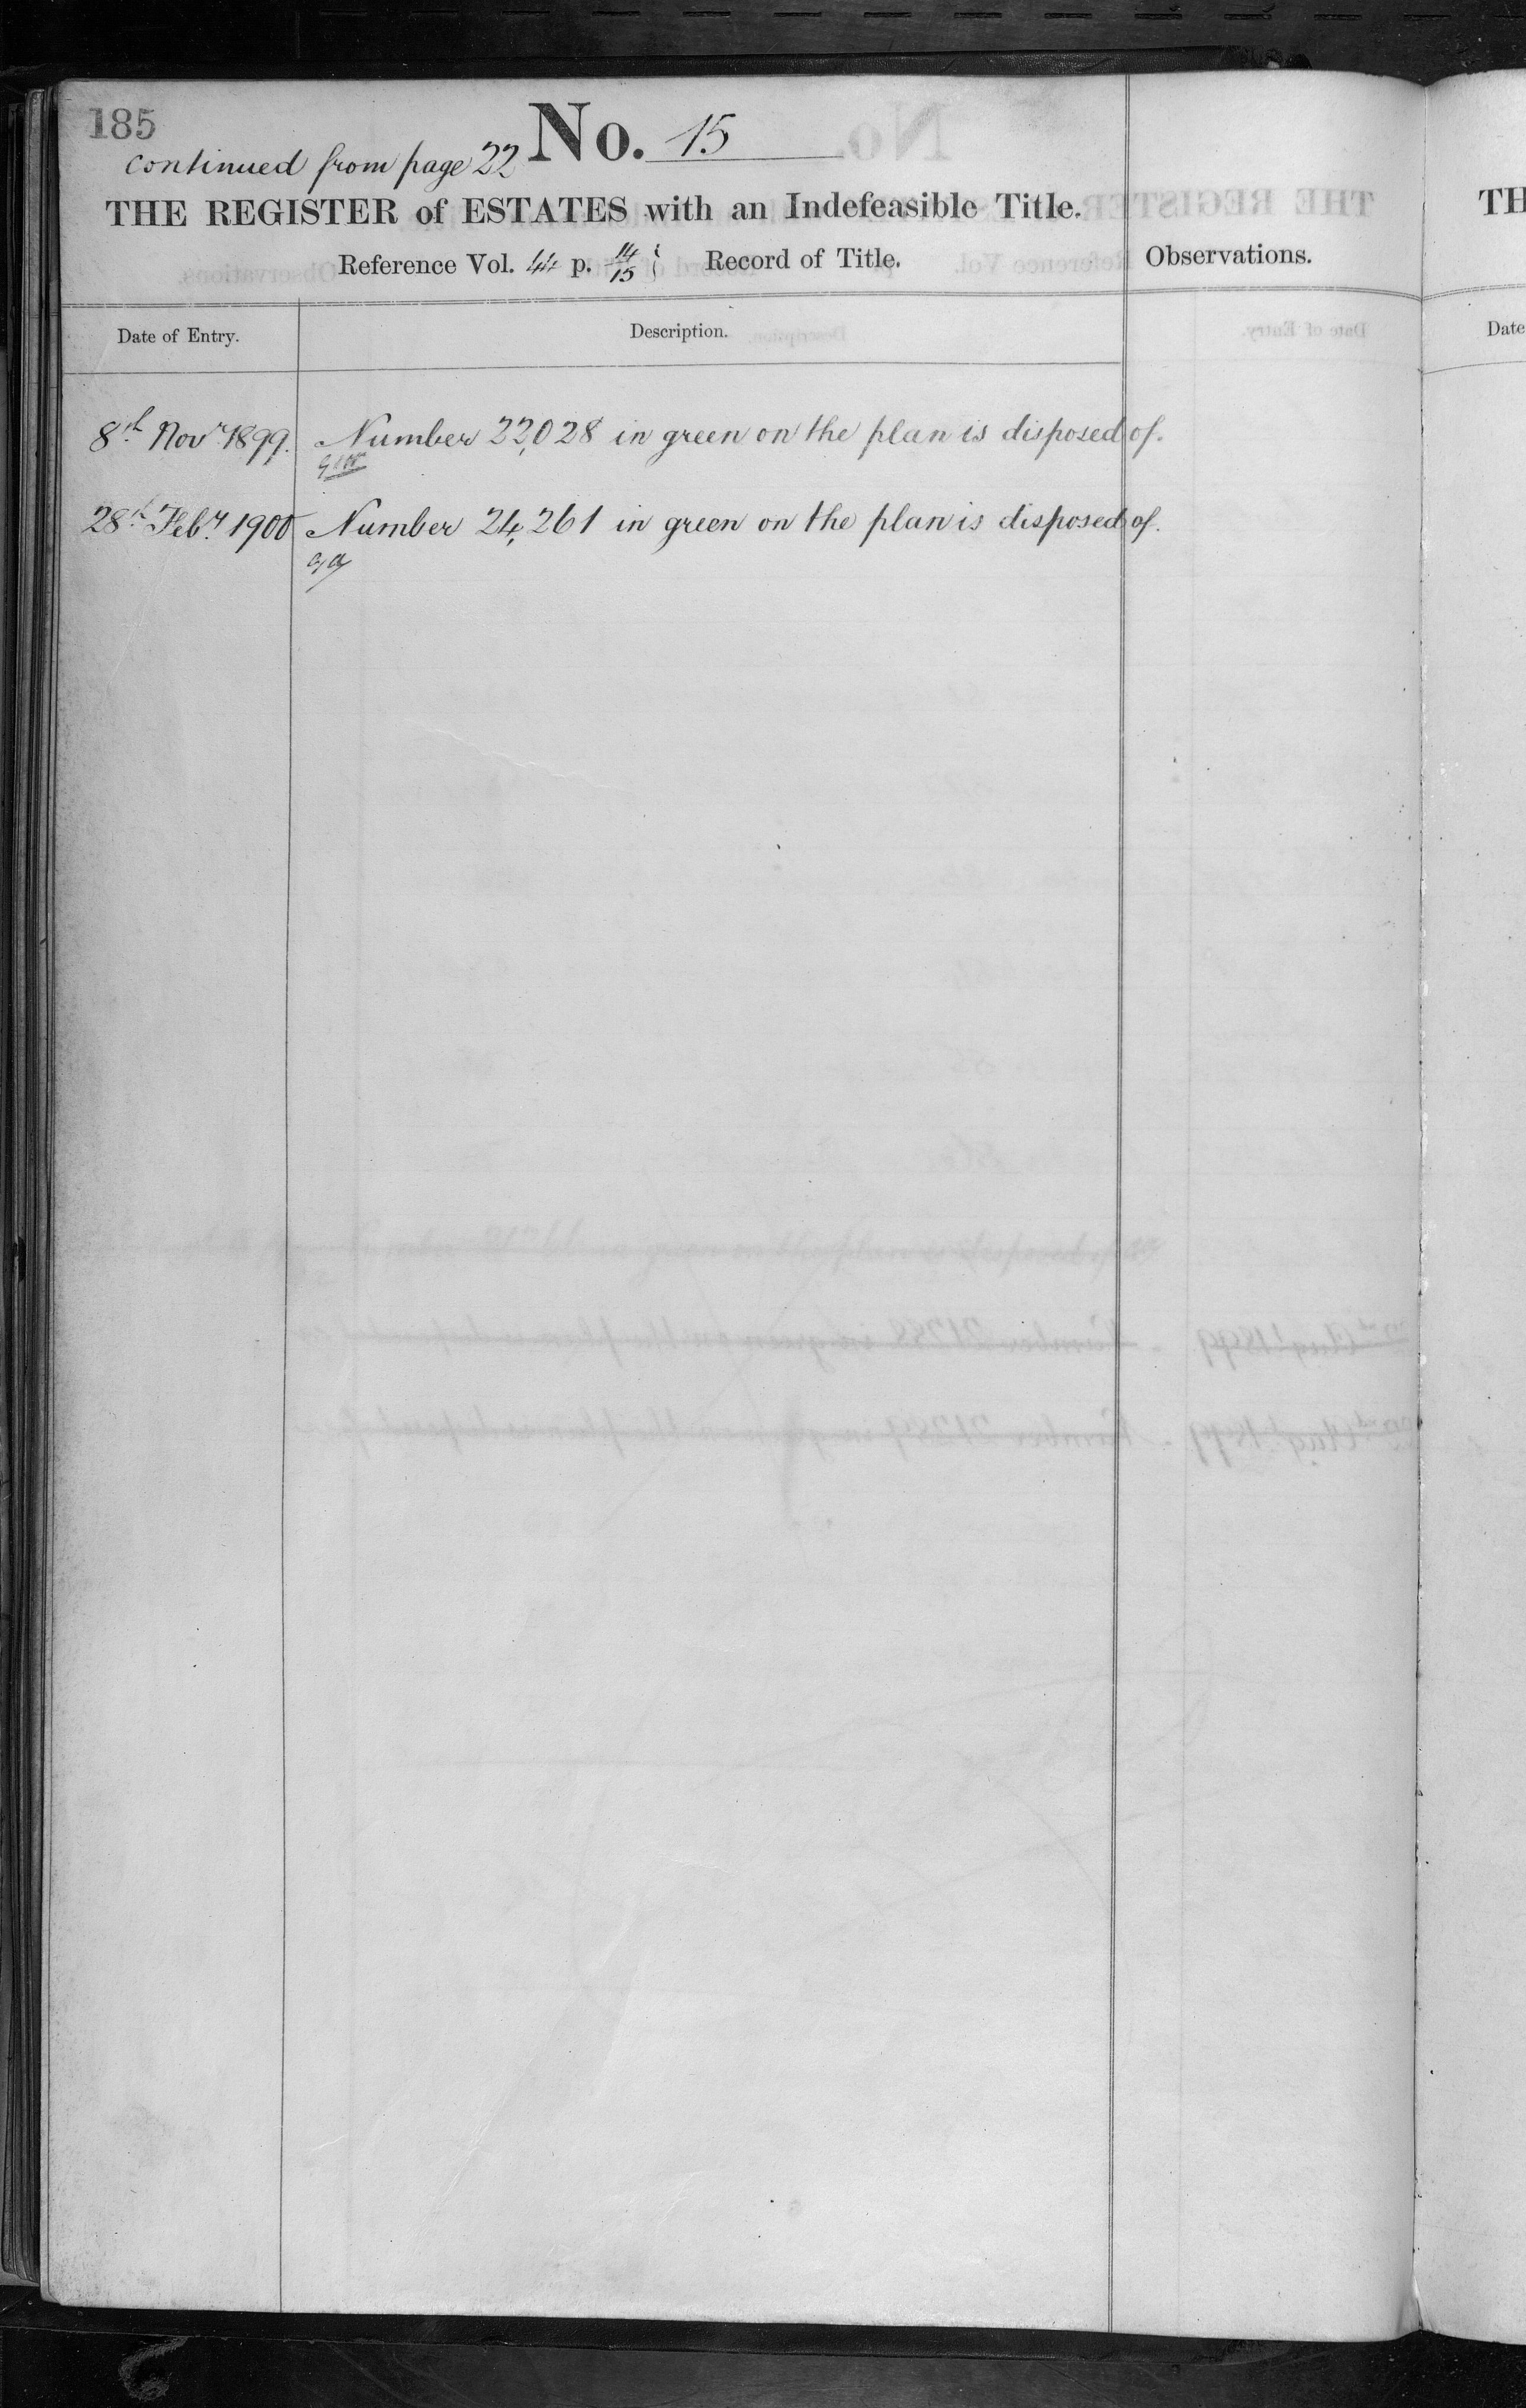 185
No. 15
continued from page 22
THE REGISTER of ESTATES with an Indefeasible Title.
Reference Vol. 44 p. 14/15 Record of Title.
Observations.
Date of Entry.
Description.
8th Novr 1899. Number 22,028 in green on the plan is disposed of.
28th Feby 1900 Number 24,261 in green on the plan is disposed of.
TH
Date